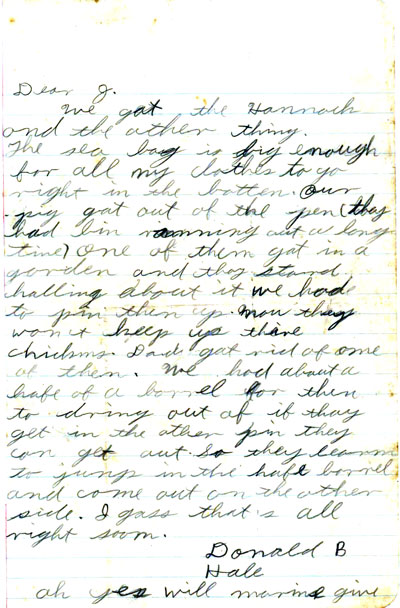 Dear J.
We got the Hannach
and the other thing.
The sea bag is big enough
for all my clothes to go
right in the botten. Our
pig got out of the pen (thay
had bin running out a long
time) One of them got in a
gorden and thay stard
halling about it we hade
to pin then up. Mow they
won't keep up there
chichens. Dad got rid of ome
of then. We had about a
hafe of a borrel for then
to dring out of if thay
get in the other pin they
can get out. So they learnn
to jump in the hafe borrel
and come out on the other
side. I gass that's all
right soom.
Donald B
Hale
oh yes will marine give